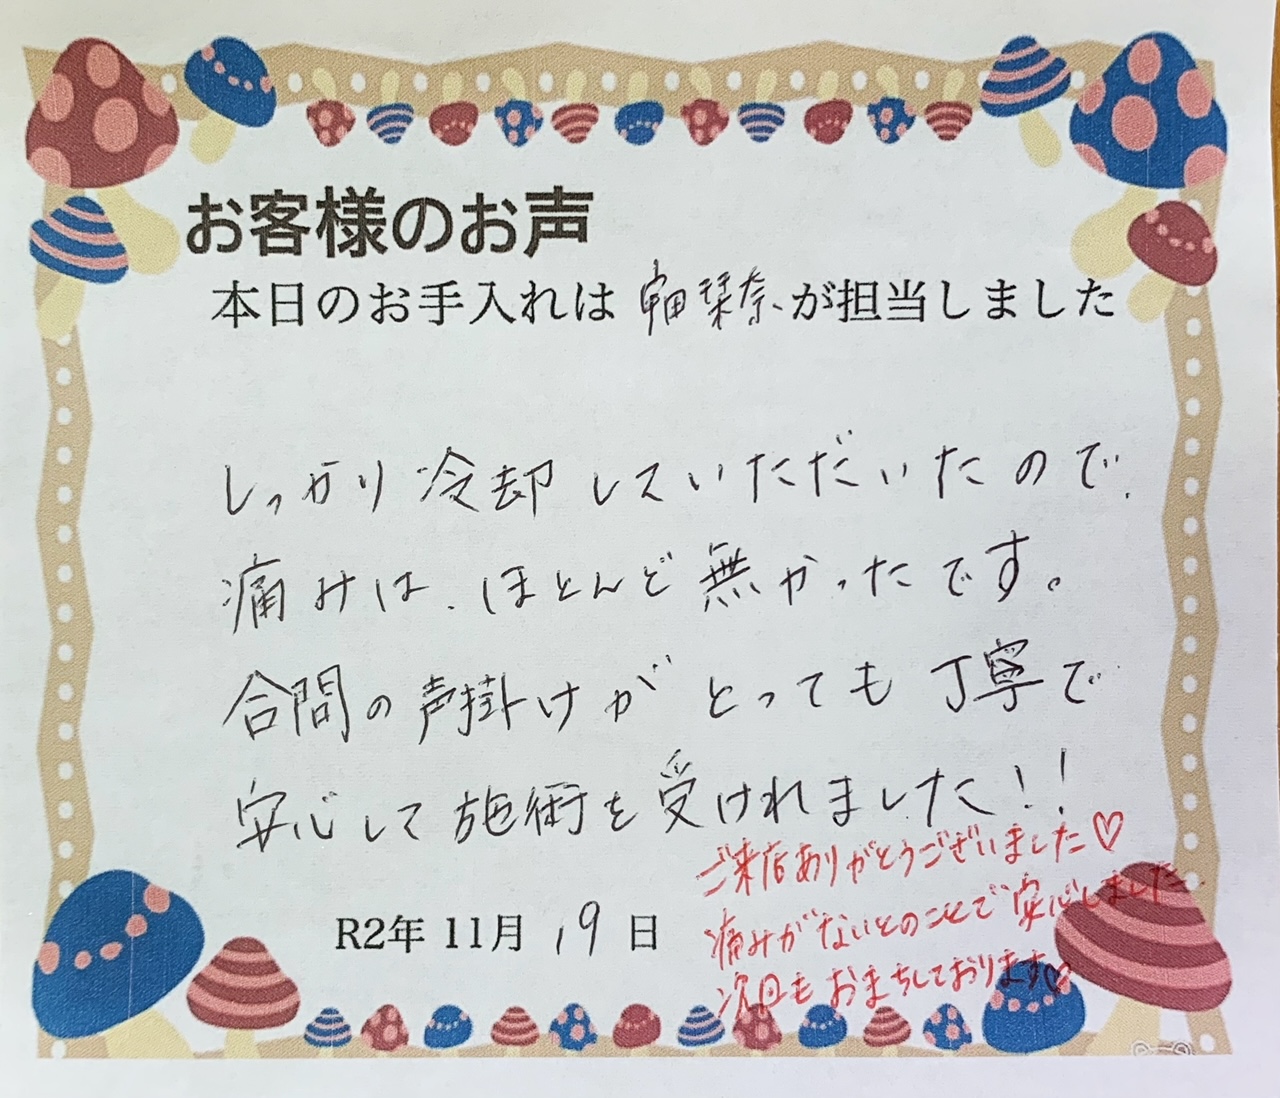 お客様のお声
本日のお手入れは 琹奈が担当しました
しっかり冷却していただいたので、
痛みは、ほとんど無かったです。
合間の声掛けがとっても丁寧で
安心して施術を受けれました!!
ご来店ありがとうございました♡
痛みがないとのことで安心しました
次回もおまちしております♡
R2年 11月 19日